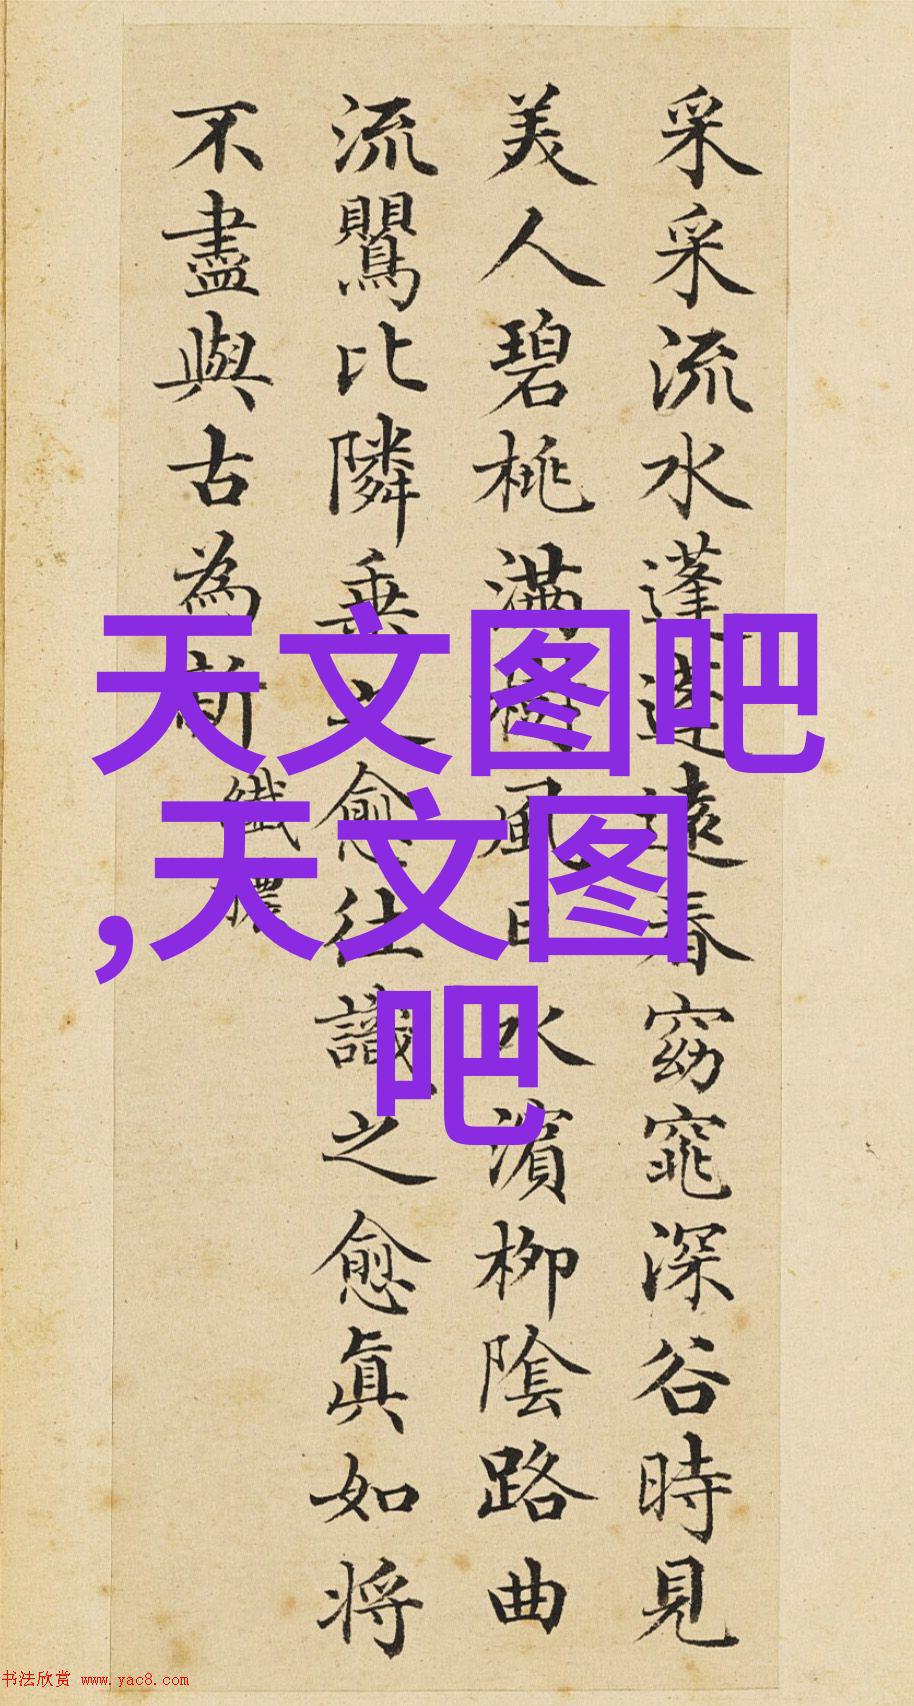 采采流水蓬蓬遠春窈窕深谷時見
美人碧桃滿樹風日水濱柳陰路曲
流鶯比隣乗之愈往識之愈眞如将
不盡與古為新
纖穠
天文图吧
,天文图
吧
书法欣赏 www.yac8.com